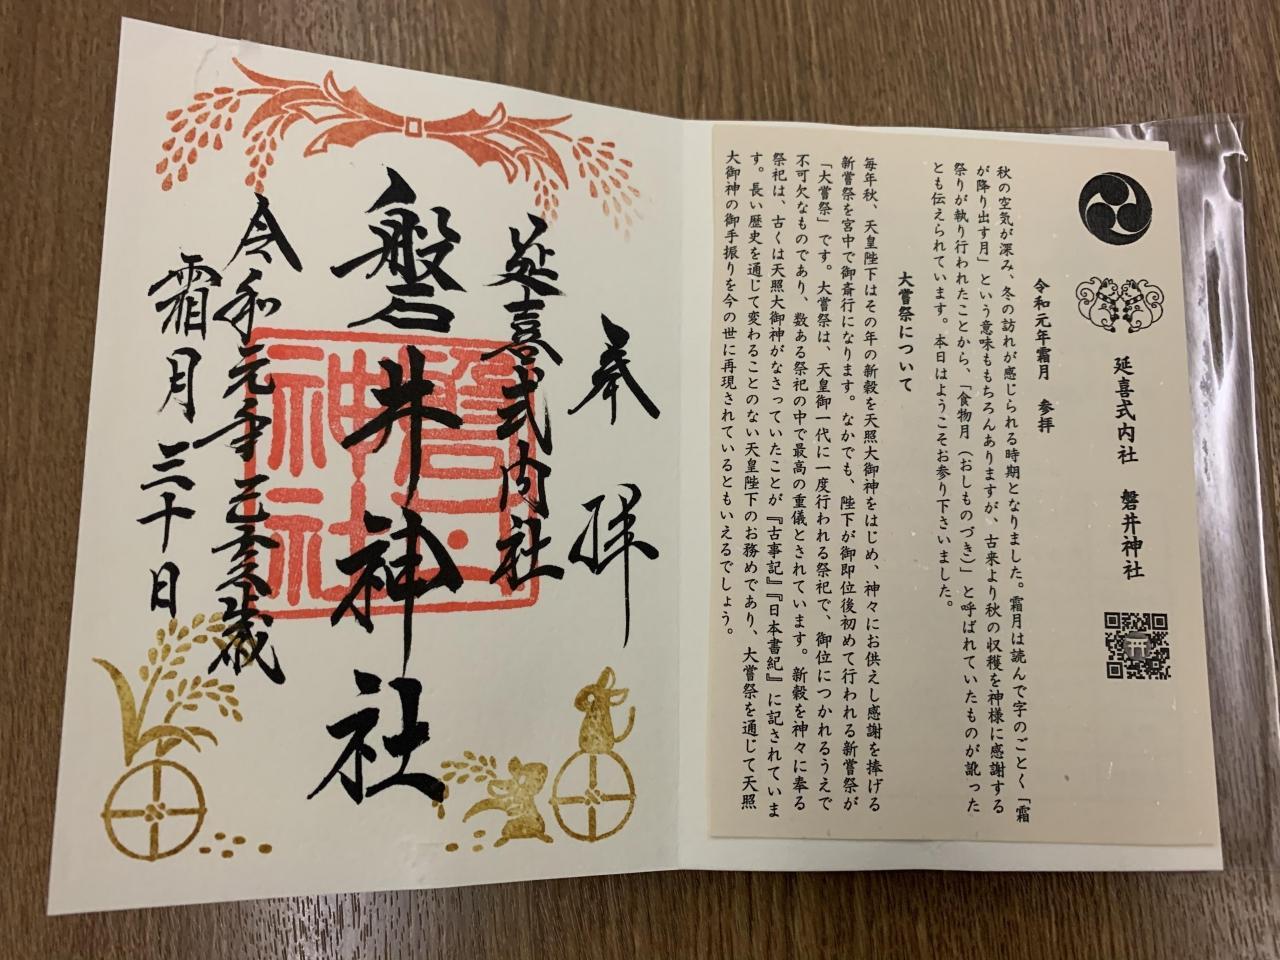 延喜式内社 磐井神社
令和元年霜月 参拝
秋の空気が深み、冬の訪れが感じられる時期となりました。霜月は読んで字のごとく「霜
が降り出す月」という意味ももちろんありますが、古来より秋の収穫を神様に感謝する
祭りが執り行われたことから、「食物月（おしものづき）」と呼ばれていたものが訛った
とも伝えられています。本日はようこそお参り下さいました。
大嘗祭について
毎年秋、天皇陛下はその年の新穀を天照大御神をはじめ、神々にお供えし感謝を捧げる
新嘗祭を宮中で御斎行になります。なかでも、陛下が御即位後初めて行われる新嘗祭が
「大嘗祭」です。大嘗祭は、天皇御一代に一度行われる祭祀で、御位につかれるうえで
不可欠なものであり、数ある祭祀の中で最高の重儀とされています。新穀を神々に奉る
祭祀は、古くは天照大御神がなさっていたことが『古事記』『日本書紀』に記されていま
す。長い歴史を通じて変わることのない天皇陛下のお務めであり、大嘗祭を通じて天照
大御神の御手振りを今の世に再現されているともいえるでしょう。
奉拝
延喜式内社
磐井神社
令和元年己亥歳
霜月三十日
磐井神社